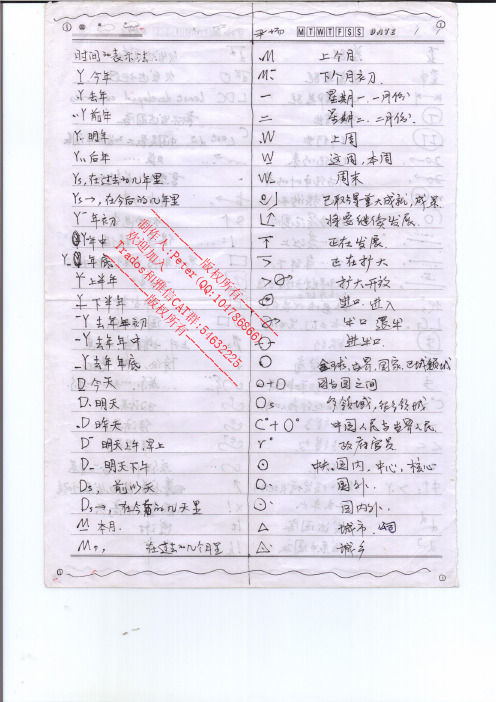 MTWTFSS DATE
时间的表示法
Y 今年
.Y 去年
..Y 前年
Y. 明年
Y.. 后年
Ys, 在过去的几年里
Ys→, 在今后的几年里
Yˉ 年初
Y 年中
Y_ 年底
Y 上半年
Y 下半年
ˉY 去年年初
-Y 去年年中
_Y 去年年底
D 今天
D. 明天
.D 昨天
Dˉ 明天上午,早上
D_ 明天下午
Ds, 前几天
Ds→, 在今后的几天里
M 本月.
Ms, 在过去的几个月里
.M 上个月
M.ˉ 下个月初
一 星期一.一月份
二 星期二.二月份.
.W 上周
W 这周,本周
W_ 周末
已取得重大成就,成果
将会继续发展
正在发展
正在扩大
扩大开放
进口,进入
出口 退出
进出口
全球,世界,国家,已域领域
O+O 国与国之间
Os 多领域,
C°+O° 中国人民与世界人民
r° 政府官员
⊙ 中央,国内,中心,核心
O. 国外.
⊙. 国内外.
△ 城市.
△. 城乡
制作人:Peter (QQ:1047868661)
欢迎加入————版权所有————
Trados和雅信CAT群:54632225
————版权所有————